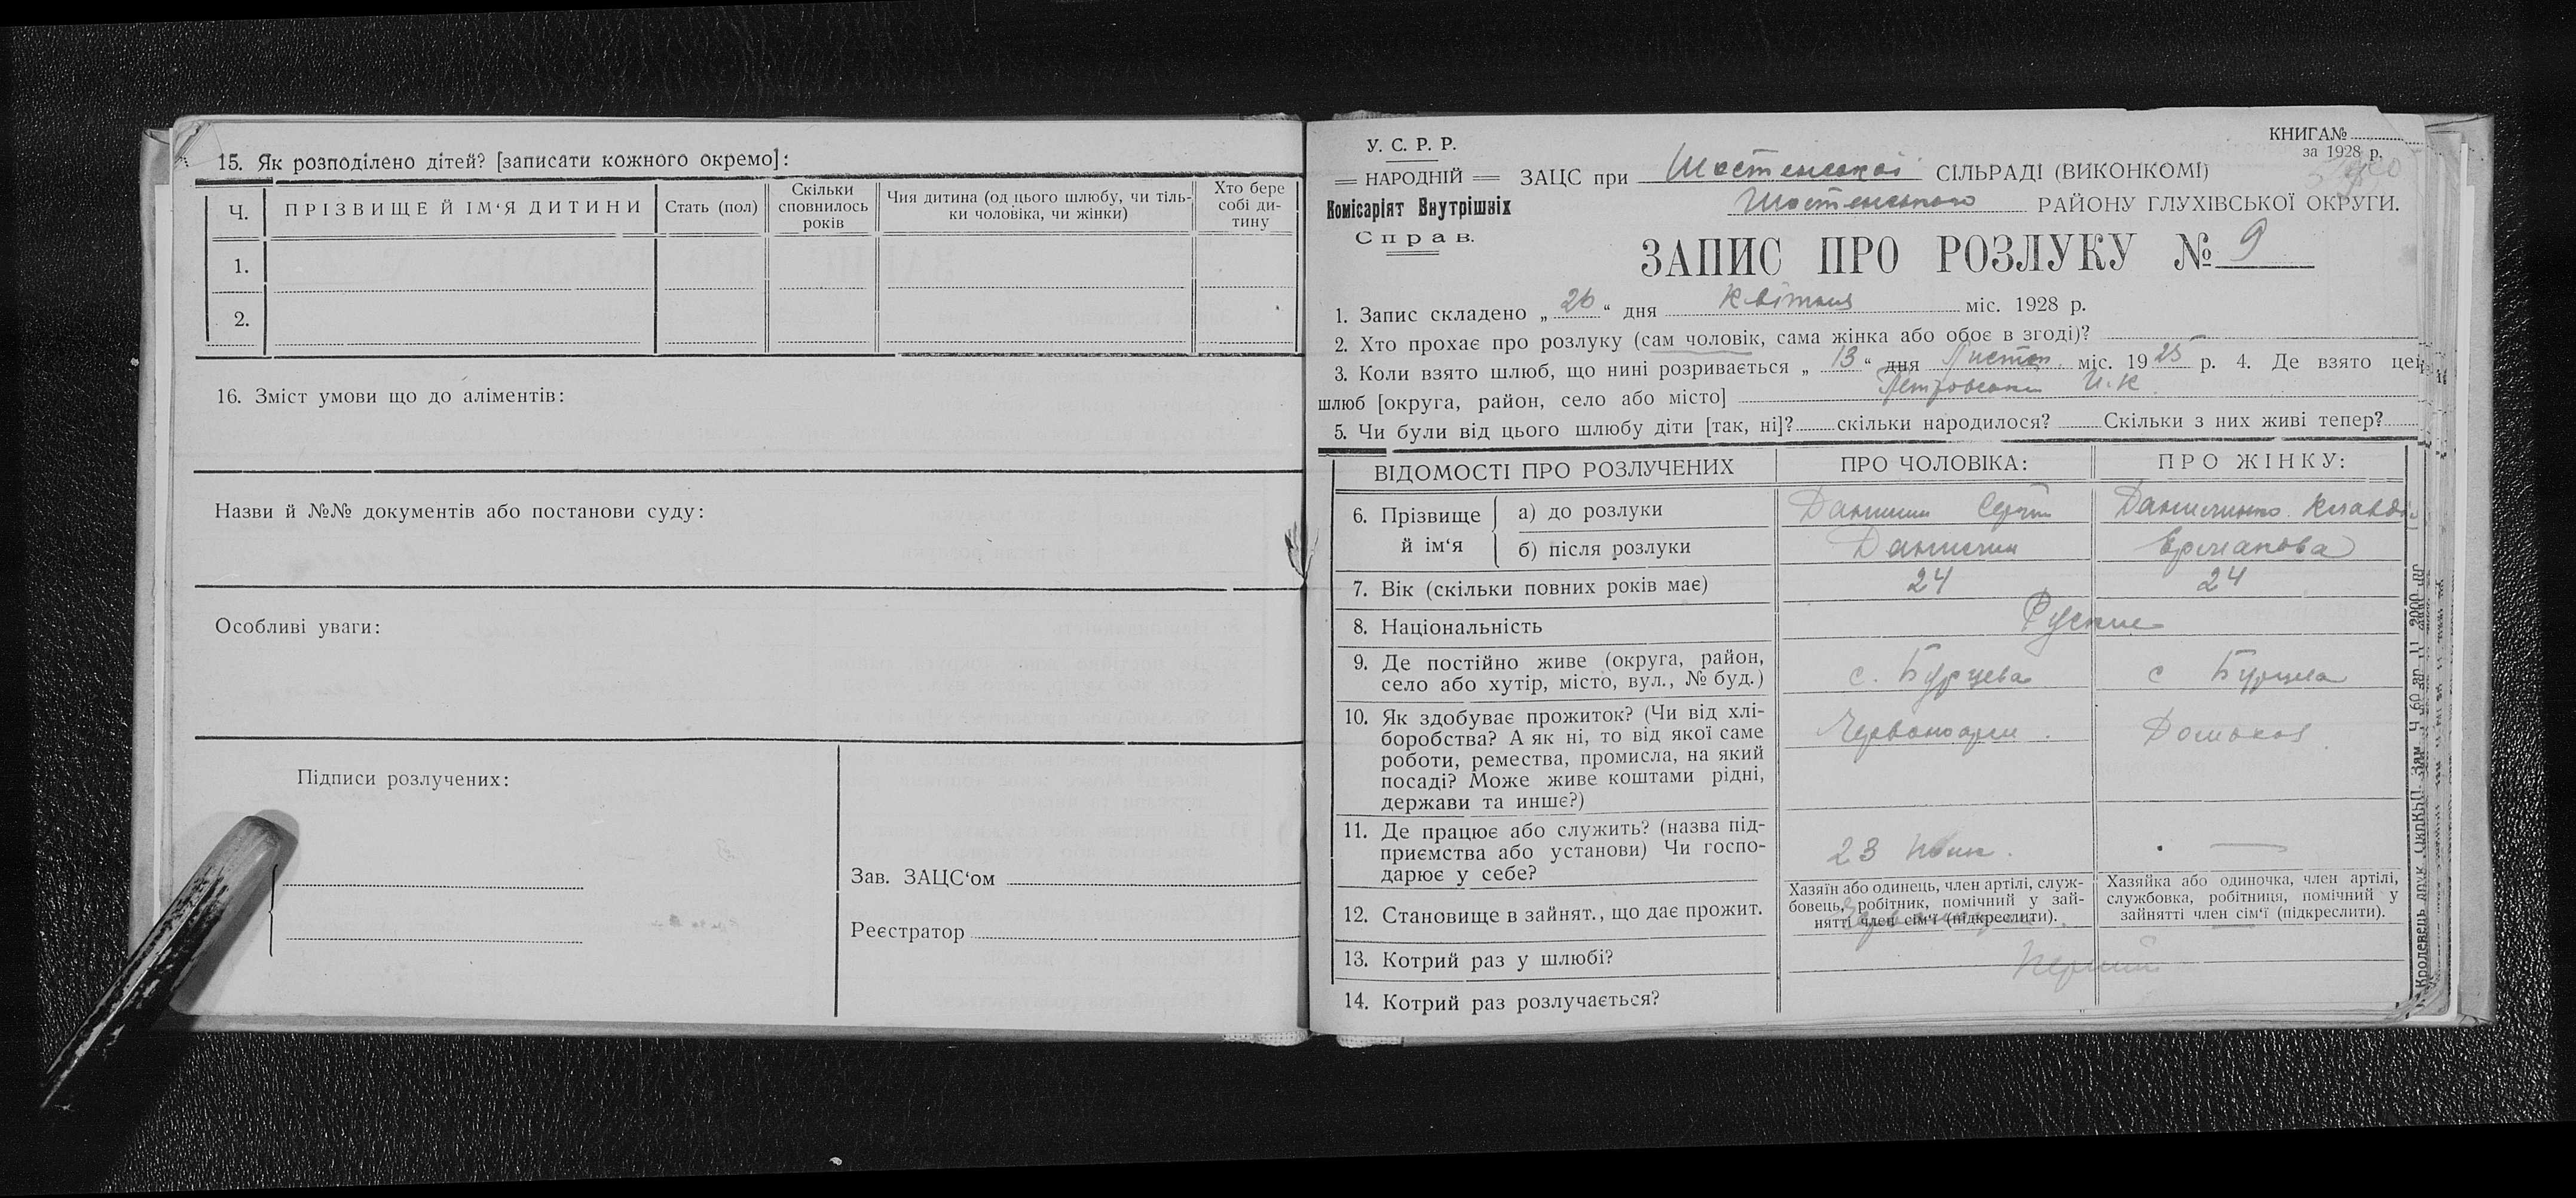 15. Як розподілено дітей? [записати кожного окремо]:
Ч.
ПРІЗВИЩЕ Й ІМ‘Я ДИТИНИ
Стать (пол)
Скільки
сповнилось
років
Чия дитина (од цього шлюбу, чи тіль-
ки чоловіка, чи жінки)
Хто бере
собі ди-
тину
1.
2.
16. Зміст умови що до аліментів:
Назви й №№ документів або постанови суду:
Особливі уваги:
Підписи розлучених:
Зав. ЗАЦС‘ом
Реєстратор
У. С. Р. Р.
НАРОДНІЙ
Комісаріят Внутрішніх
Справ.
КНИГА№
за 1928 р.
ЗАЦС при Шостенській СІЛЬРАДІ (ВИКОНКОМІ)
Шостенського РАЙОНУ ГЛУХІВСЬКОЇ ОКРУГИ.
ЗАПИС ПРО РОЗЛУКУ № 9
1. Запис складено „ 26 “ дня Квітня міс. 1928 р.
2. Хто прохає про розлуку (сам чоловік, сама жінка або обоє в згоді)?
3. Коли взято шлюб, що нині розривається „ 13 “ дня Листоп міс. 1925 р. 4. Де взято цей
шлюб [округа, район, село або місто]
5. Чи були від цього шлюбу діти [так, ні]? скільки народилося? Скільки з них живі тепер?
ВІДОМОСТІ ПРО РОЗЛУЧЕНИХ
ПРО ЧОЛОВІКА:
ПРО ЖІНКУ:
6. Прізвище
й ім‘я
а) до розлуки
б) після розлуки
Ермакова
7. Вік (скільки повних років має)
24
24
8. Національність
Руские
9. Де постійно живе (округа, район,
село або хутір, місто, вул., № буд.)
с. Бурцева
с Бурцева
10. Як здобуває прожиток? (Чи від хлі-
боробства? А як ні, то від якої саме
роботи, ремества, промисла, на який
посаді? Може живе коштами рідні,
держави та инше?)
Червоноарм.
11. Де працює або служить? (назва під-
приємства або установи) Чи госпо-
дарює у себе?
23
12. Становище в зайнят., що дає прожит.
Хазяїн або одинець, член артілі, служ-
бовець, робітник, помічний у зай-
нятті член сім‘ї (підкреслити).
Хазяйка або одиночка, член артілі,
службовка, робітниця, помічний у
зайнятті член сім‘ї (підкреслити).
13. Котрий раз у шлюбі?
14. Котрий раз розлучається?